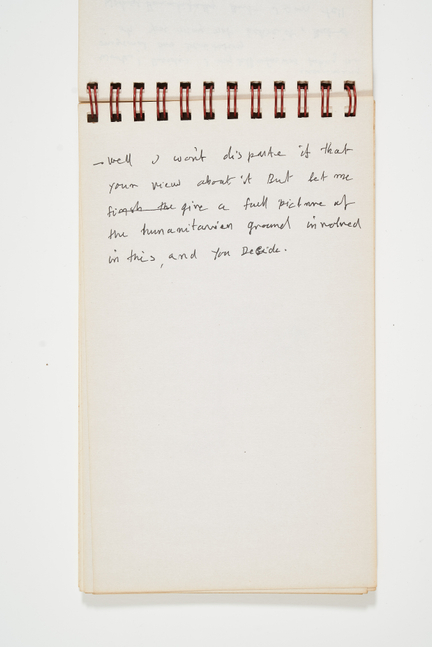 - Well I won't dispute it that
your view about it But let me
finish the give a full picture of
the humanitarian ground involved
in this, and you Decide.